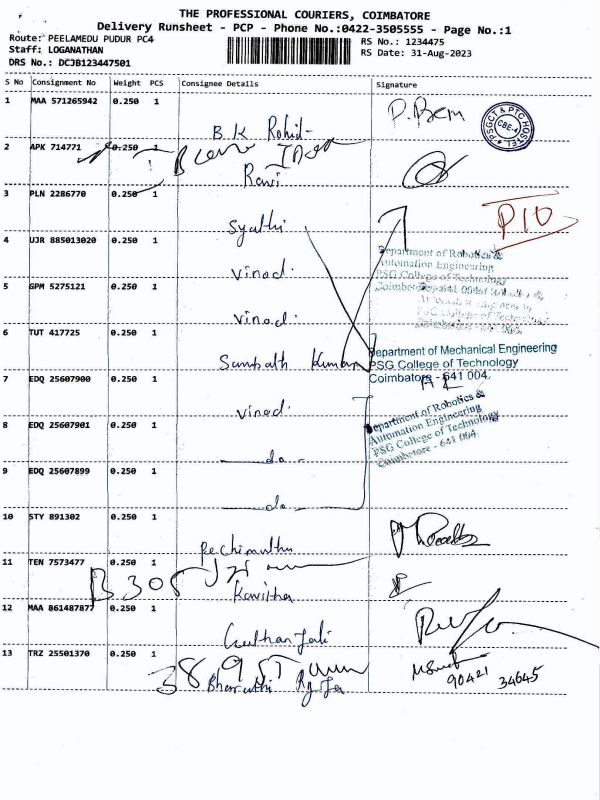 THE PROFESSIONAL COURIERS, COIMBATORE
Delivery Runsheet - PCP - Phone No.:0422-3505555 - Page No.:1
Route: PEELAMEDU PUDUR PC4
Staff: LOGANATHAN
DRS No.: DCJB123447501
RS No.: 1234475
RS Date: 31-Aug-2023
S No Consignment No Weight PCS Consignee Details Signature
1 MAA 571265942 0.250 1
B.K Rohid P.Bem
PSGCT & PTC HOSTEL CBE-4
2 APK 714771 0.250 1
Ravi
3 PLN 2286770 0.250 1
Syathi P10
4 UJR 885013020 0.250 1
Vinod.
Department of Robotics &
Automation Engineering
PSG College of Technology
5 GPM 5275121 0.250 1
Vinod.
6 TUT 417725 0.250 1
Sampath Kumar
Department of Mechanical Engineering
PSG College of Technology
Coimbatore - 641 004.
7 EDQ 25607900 0.250 1
Vinod.
Department of Robotics &
Automation Engineering
PSG College of Technology
Coimbatore - 641 004.
8 EDQ 25607901 0.250 1
do
9 EDQ 25607899 0.250 1
do
10 STY 891302 0.250 1
Pechimuthu
11 TEN 7573477 0.250 1
B305
Kavitha
12 MAA 861487877 0.250 1
13 TRZ 25501370 0.250 1
Bharathi
90421 34645